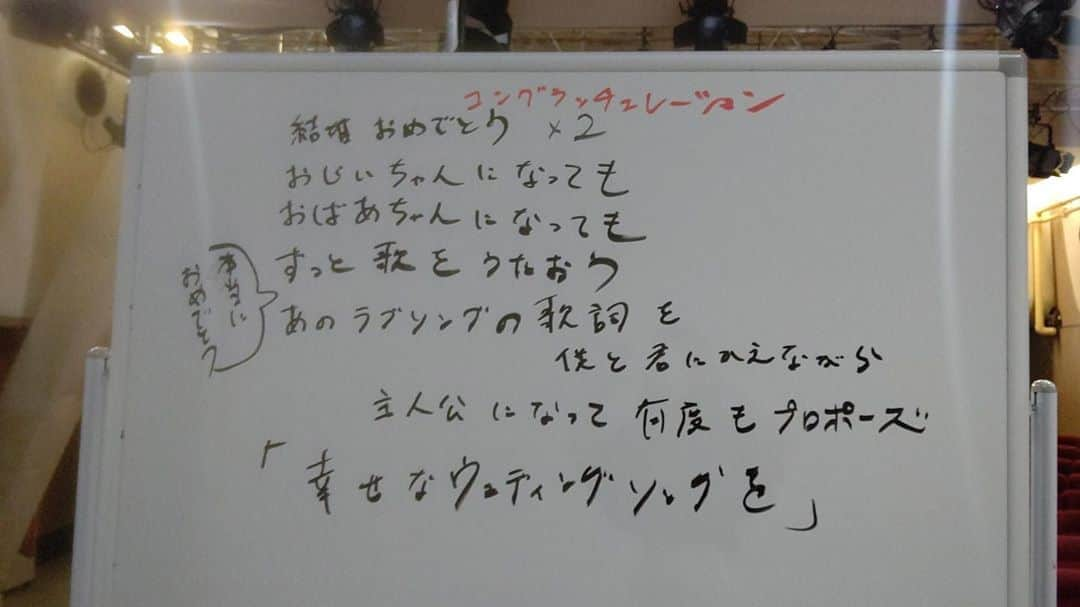 コングラッチュレーション
結婚 おめでとう ×2
おじいちゃんになっても
おばあちゃんになっても
ずっと歌をうたおう
本当に
おめでとう
あのラブソングの歌詞を
僕と君にかえながら
主人公になって何度もプロポーズ
「幸せなウェディングソングを」